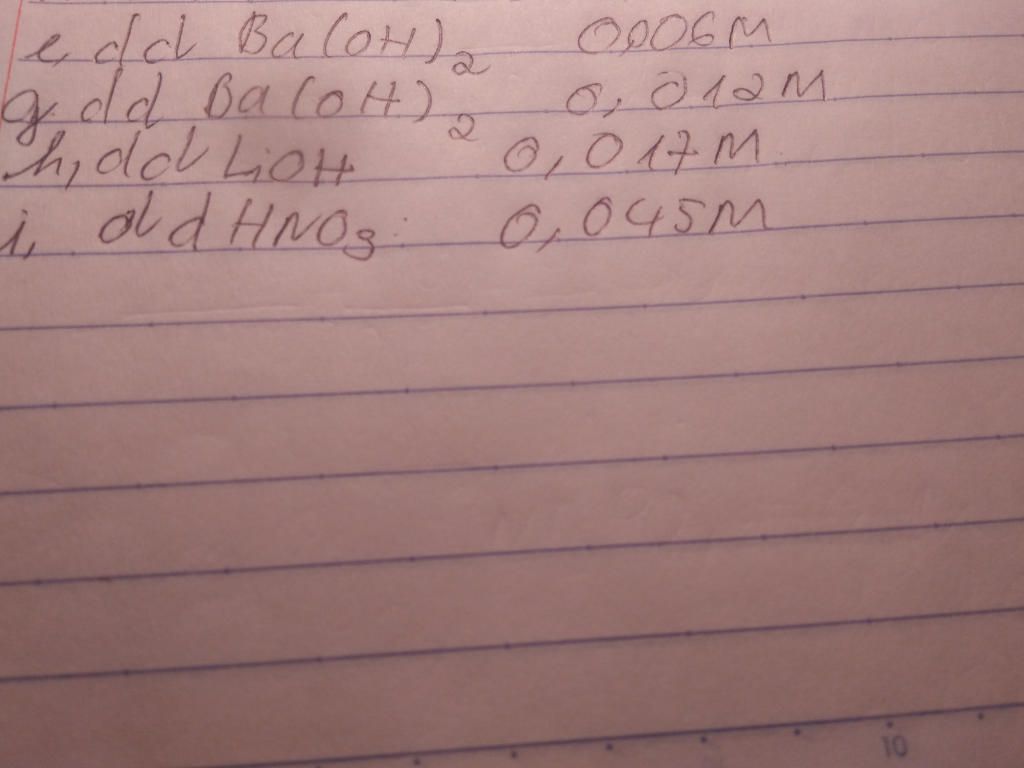 e, dd Ba(OH)₂ 0,006M
g, dd Ba(OH)₂ 0,012M
h, dd LiOH 0,017M
i, dd HNO₃ 0,045M
10